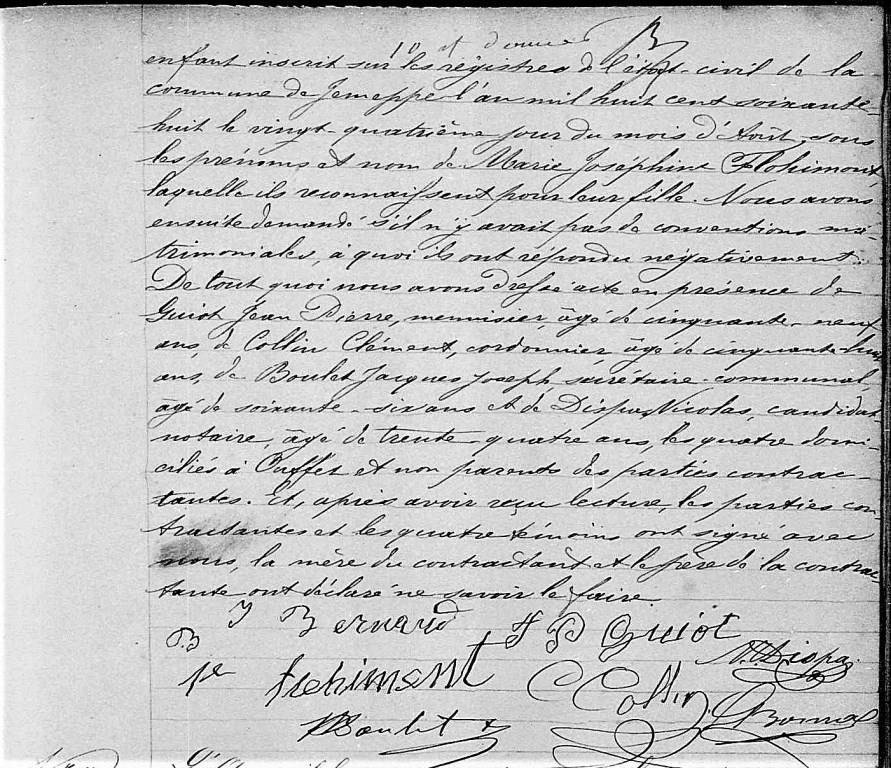 enfant inscrit sur les régistres de l'état-civil de la
commune de Jemeppe l'an mil huit cent soixante-
huit le vingt-quatrième jour du mois d'Août, sous
les prénoms et nom de Marie Joséphine Flohimont,
laquelle ils reconnaissent pour leur fille. Nous avons
ensuite demandé s'il n'y avait pas de conventions ma-
trimoniales, à quoi ils ont répondu négativement.
De tout quoi nous avons dressé acte en présence de
Guiot Jean Pierre, menuisier, âgé de cinquante-neuf
ans, de Collin Clément, cordonnier, âgé de cinquante-
ans, de Boulet Jacques Joseph, secrétaire communal
âgé de soixante-six ans et de Dispa, Nicolas, candidat
notaire, âgé de trente-quatre ans, les quatre domi-
ciliés à Ouffet et non parents des parties contrac-
tantes. Et, après avoir reçu lecture, les parties con-
tractantes et les quatre témoins ont signé avec
nous, la mère du contractant et le père de la contrac-
tante ont déclaré ne savoir le faire.
J Bernard J P Guiot
N. Dispa
B
C Collin
Boulet